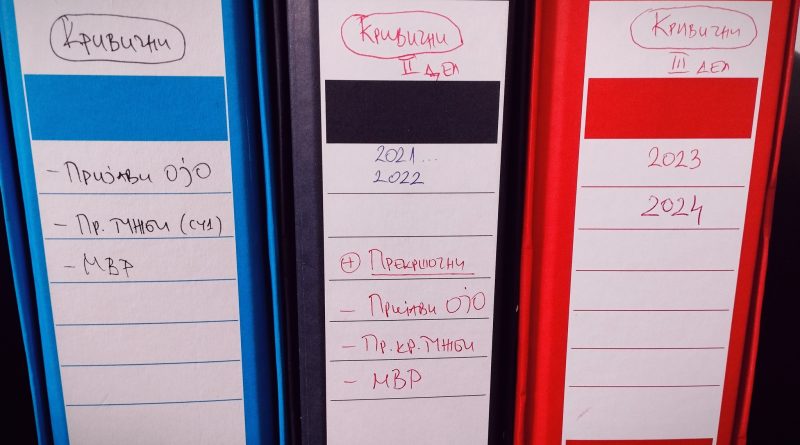 Кривични
- Пријави ОЈО
- Пр. тужби (СУД)
- МВР
Кривични
II дел
2021...
2022
+ Прекршочни
- Пријави ОЈО
- Пр.кр. тужби
- МВР
Кривични
III дел
2023
2024